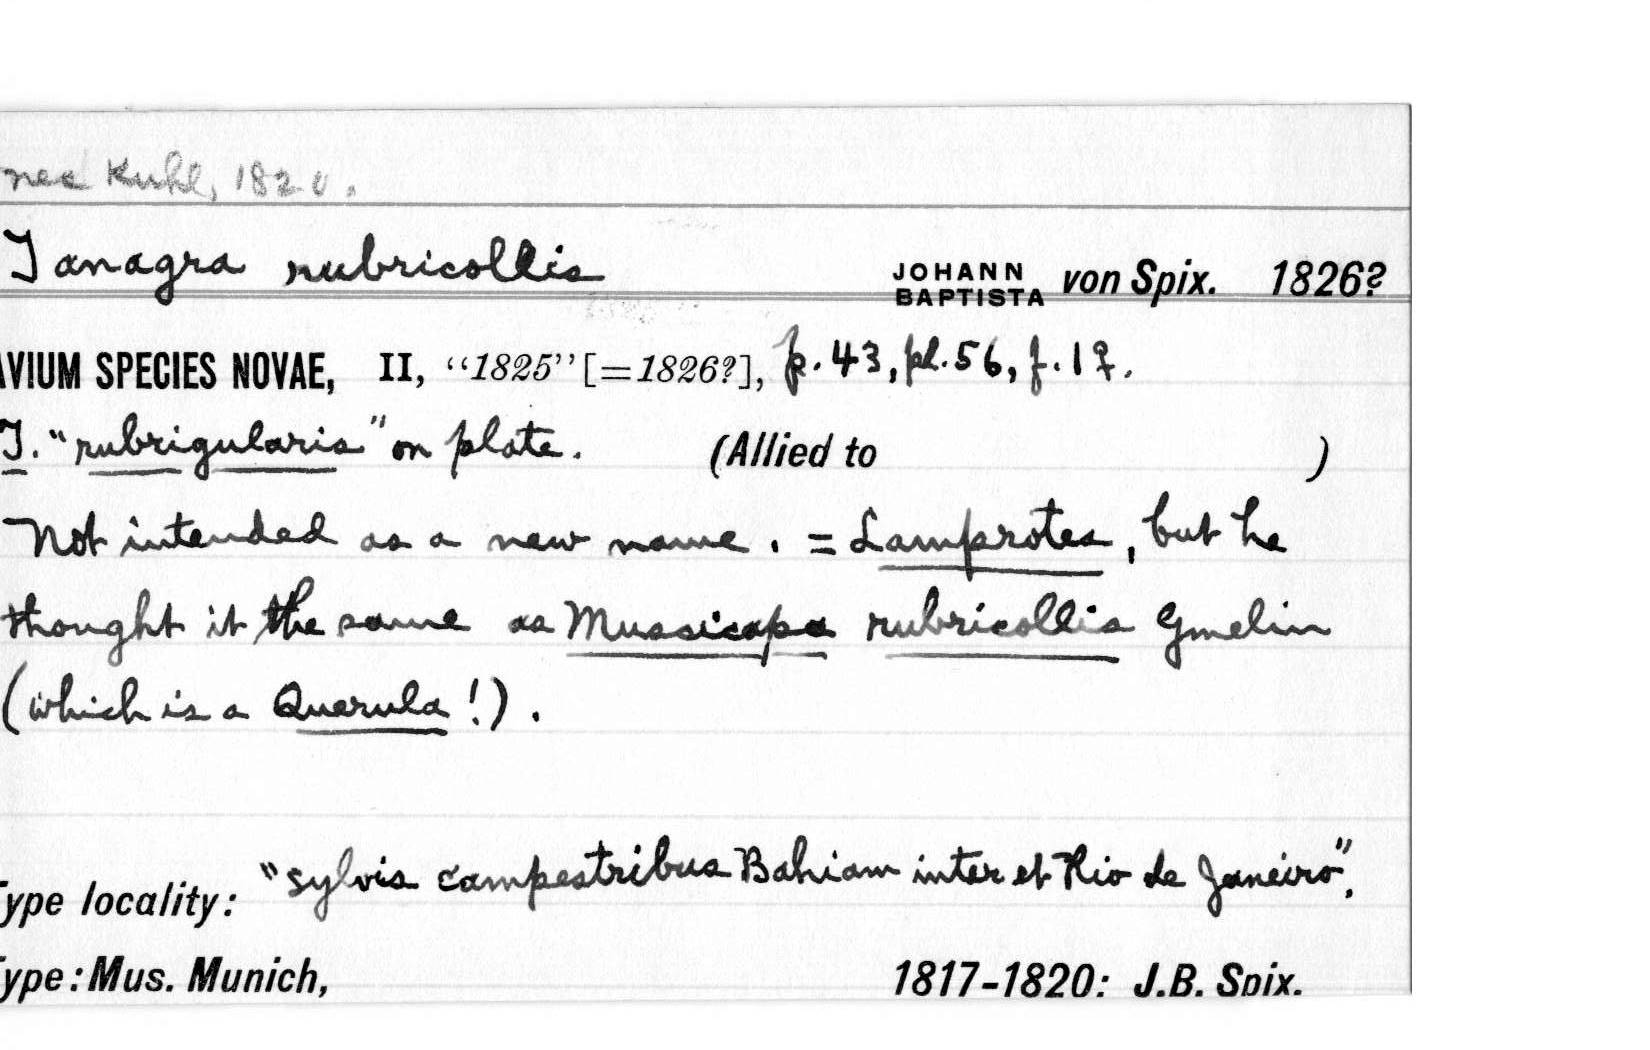 nec Kuhl, 1820.
Tanagra rubricollis JOHANN BAPTISTA von Spix. 1826?
AVIUM SPECIES NOVAE, II, "1825" [=1826?], p. 43, pl. 56, f. 1♀.
T. "rubrigularis" on plate. (Allied to )
Not intended as a new name. = Lamprotes, but he
thought it the same as Muscicapa rubricollis Gmelin
(which is a Querula!).
Type locality: "sylvis campestribus Bahiam inter et Rio de Janéiro",
Type: Mus. Munich, 1817-1820: J.B. Spix.